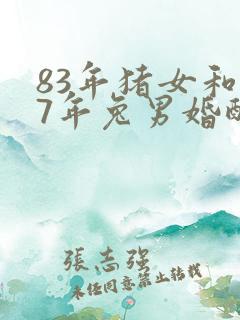 83年猪女和
7年兔男婚配
張志强
未任同意禁止转载